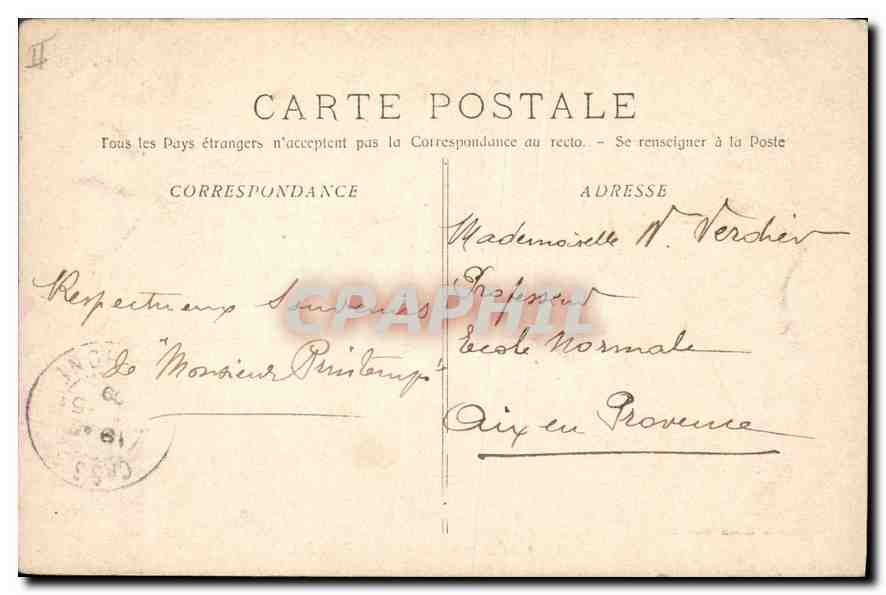 II
CARTE POSTALE
Tous les Pays étrangers n'acceptent pas la Correspondance au recto. - Se renseigner à la Poste
CORRESPONDANCE
Respectueux Souvenirs
de "Monsieur Printemps"
ADRESSE
Mademoiselle N. Verdier
Professeur
Ecole Normale
Aix en Provence
CPAPHIL